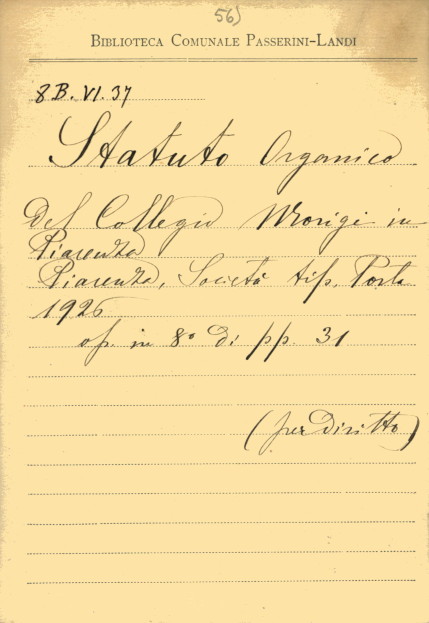 56)
BIBLIOTECA COMUNALE PASSERINI-LANDI
8B. VI. 37
Statuto Organico
del Collegio Morigi in
Piacenza
Piacenza, Società tip. Porta
1926
op. in 8° di pp. 31
(per diritto)